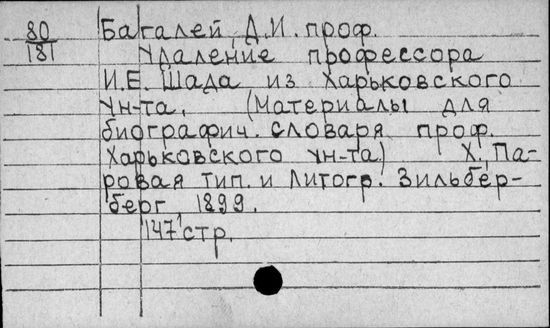 80
181
Багалей, Д.И. проф.
Удаление профессора
И.Е. Шада из Харьковского
Ун-та. (Материалы для
биографич. словаря проф.
Харьковского ун-та) Х., Па-
ровая Тип. и Литогр. Зильбер-
берг 1899.
147 стр.